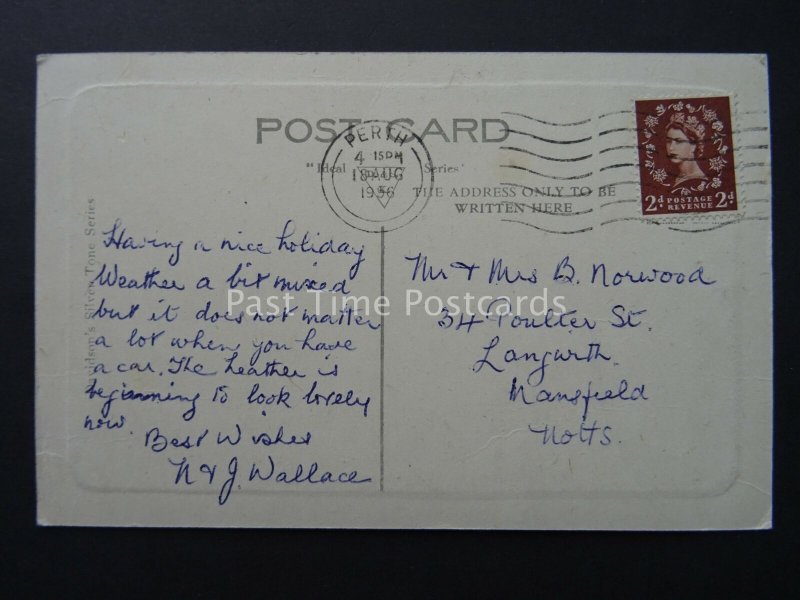 POST CARD
PERTH
4 15PM
18 AUG
1956
"Ideal Series"
THE ADDRESS ONLY TO BE
WRITTEN HERE
2d POSTAGE 2d
REVENUE
Davidson's Silver Tone Series
Having a nice holiday
Weather a bit mixed
but it does not matter
a lot when you have
a car. The heather is
beginning to look lovely
now.
Best Wishes
N & J. Wallace
Mr & Mrs B. Norwood
34 Poulter St.
Langwith
Mansfield
Notts.
Past Time Postcards